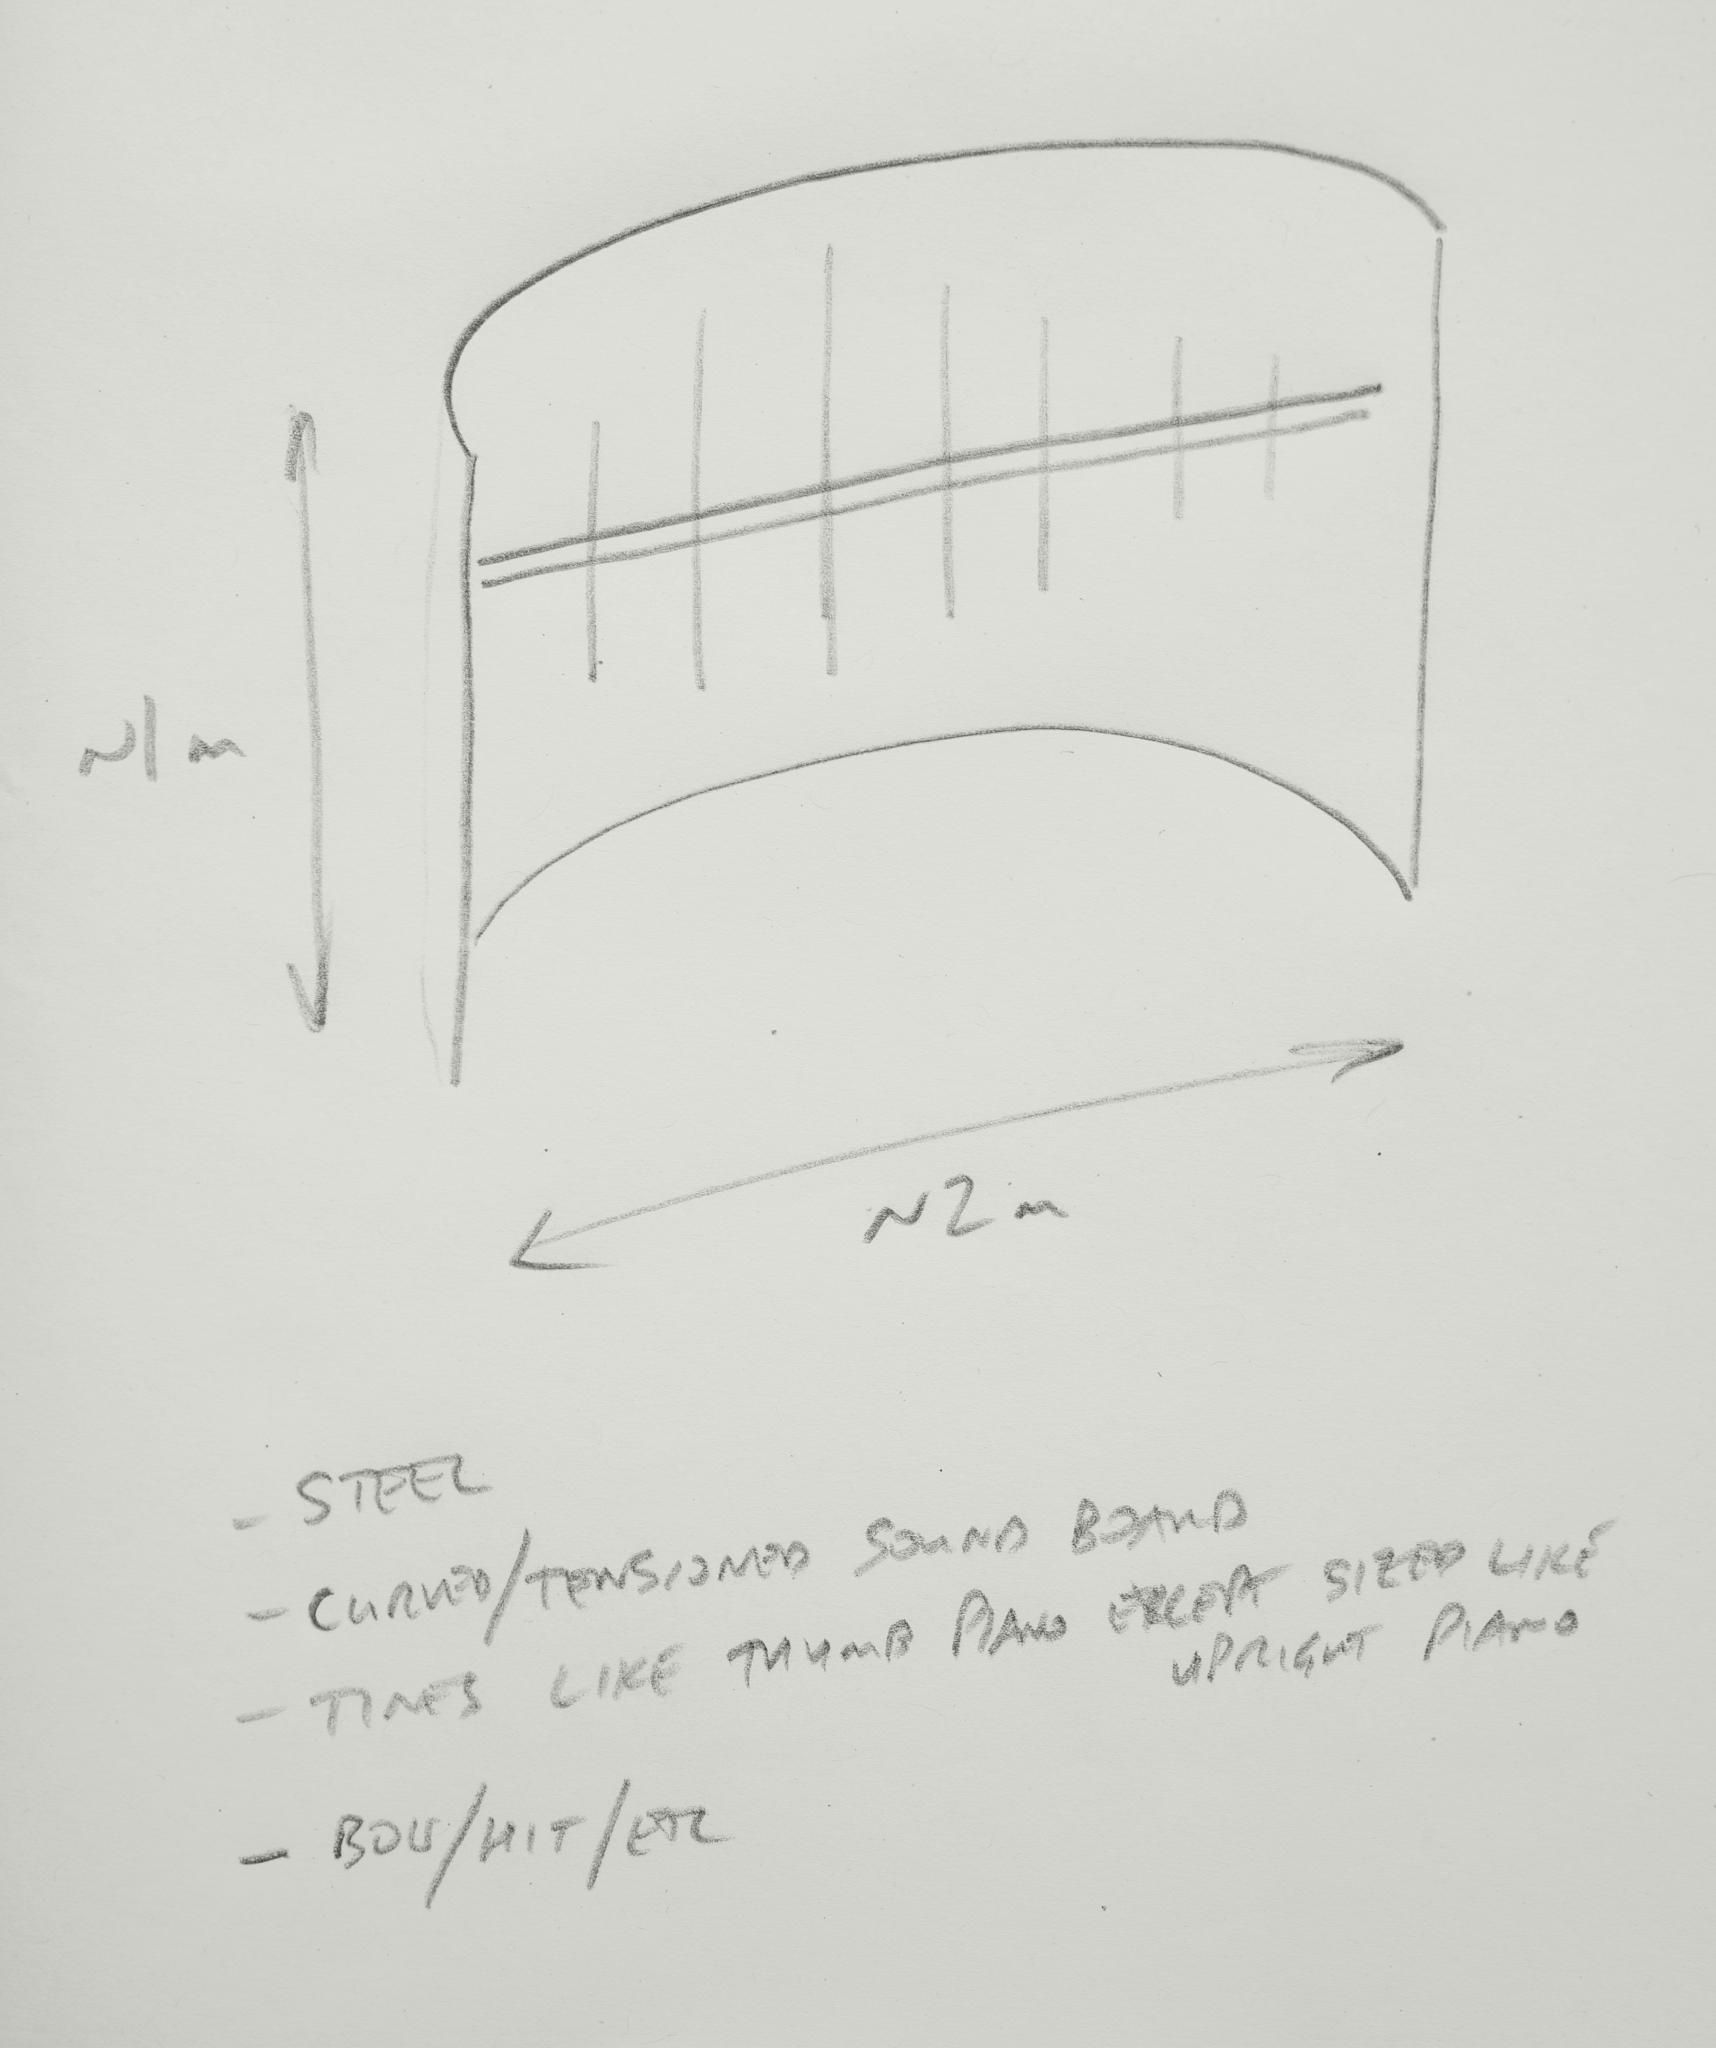 ~1m
~2m
- STEEL
- CURVED/TENSIONED SOUND BOARD
- TINES LIKE THUMB PIANO EXCEPT SIZED LIKE
UPRIGHT PIANO
- BOW/HIT/ETC